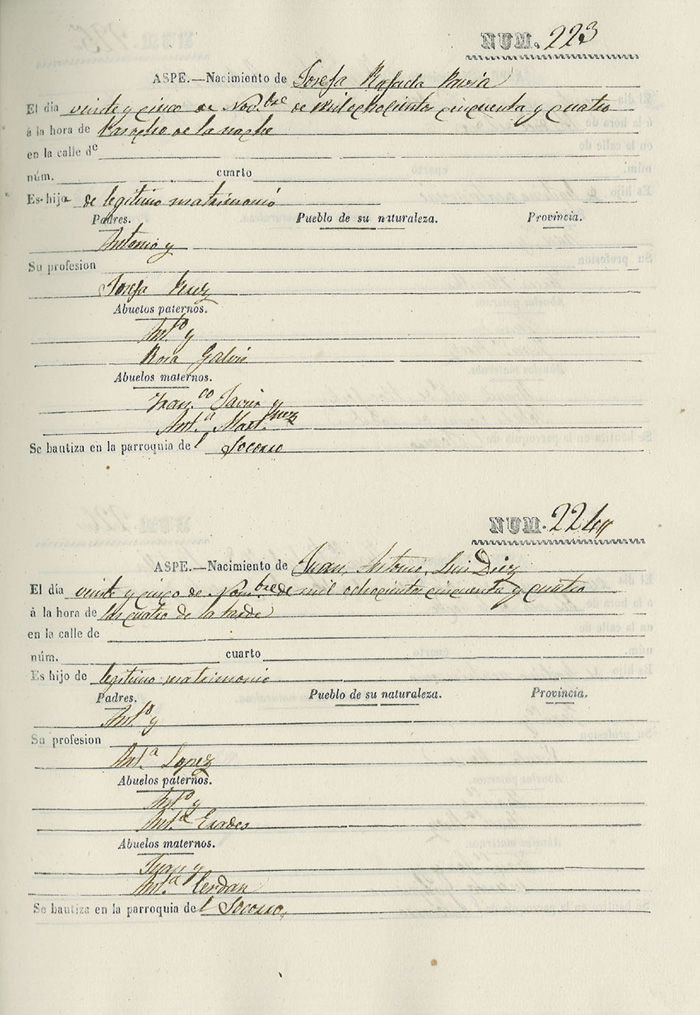 NUM. 223
ASPE.—Nacimiento de Josefa Rafaela Pavia
El dia veinte y cinco de Nov.bre de mil ochocientos cincuenta y cuatro
á la hora de las ocho de la noche
en la calle de
núm. cuarto
Es hija de legitimo matrimonio
Padres. Pueblo de su naturaleza. Provincia.
Antonio y
Su profesion
Josefa
Abuelos paternos.
Ant.o y
Rosa Galvis
Abuelos maternos.
Fran.co y
Ant.a Mart.nez
Se bautiza en la parroquia del Socorro
NUM. 224
ASPE.—Nacimiento de Juan Antonio Luis Diez
El dia veinte y cinco de Nom.bre de mil ochocientos cincuenta y cuatro
á la hora de las cuatro de la tarde
en la calle de
núm. cuarto
Es hijo de legitimo matrimonio
Padres. Pueblo de su naturaleza. Provincia.
Ant.o y
Su profesion
Ant.a Lopez
Abuelos paternos.
Ant.o y
Ant.a
Abuelos maternos.
Juan y
Ant.a Cerdan
Se bautiza en la parroquia del Socorro